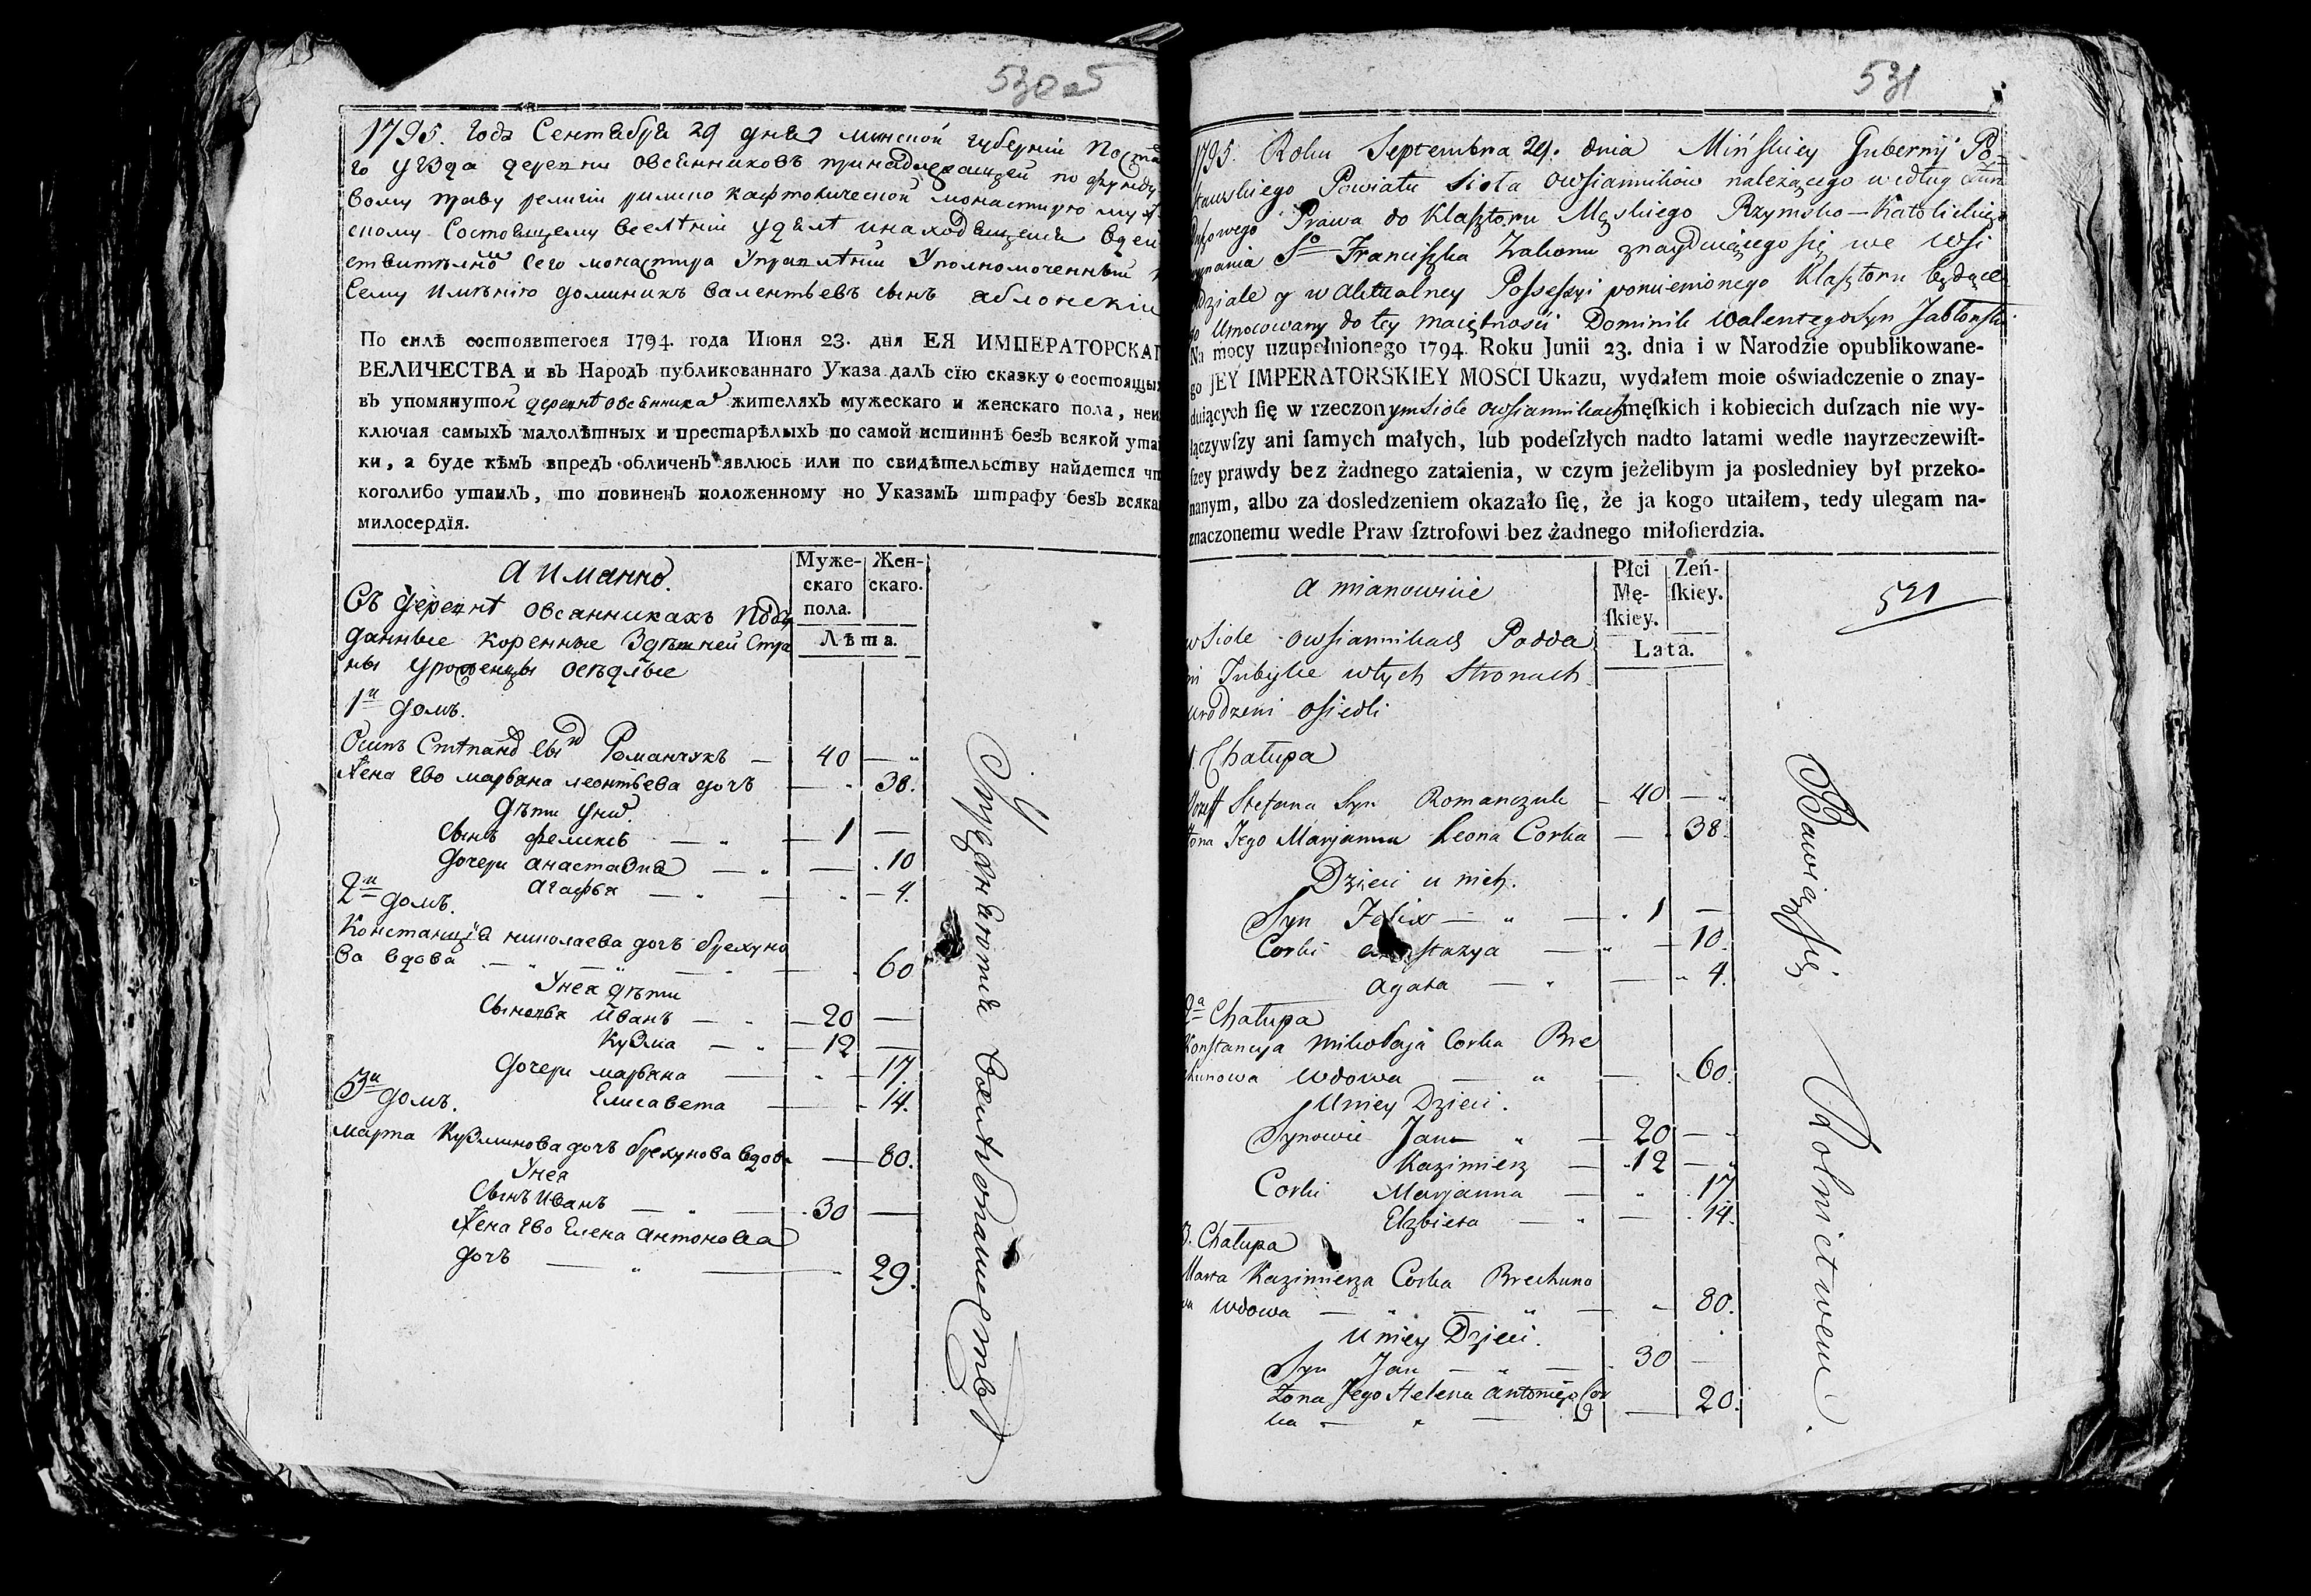 530 об
1795. года Сентября 29 дня минской губернии Поста
го уезда деревни Овсянниковъ принадлежащей по фунду
вому праву религии римско кафтолической монастырю му
скому состоящему вселении Уделе инаходящемся вдей
ствителномъ сего монастыра Управлении Уполномоченный к
сему имению доминикъ валентьевъ сынъ яблонский
По силѣ состоявшегося 1794. года Июня 23. дня ЕЯ ИМПЕРАТОРСКАГ
ВЕЛИЧЕСТВА и въ Народъ публикованнаго Указа далъ сїю сказку о состоящы
въ упомянутой деревнѣ овсянника жителяхъ мужескаго и женскаго пола, неи
ключая самыхъ малолѣтныхъ и престарѣлыхъ по самой истиннѣ безъ всякой утаи
ки, а буде кѣмъ впредъ обличенъ явлюсь или по свидѣтельству найдется чт
коголибо утаилъ, то повиненъ положенному по Указамъ штрафу безъ всяка
милосердїя.
А имянно.
Муже-
скаго
пола.
Жен-
скаго.
Лѣта.
Въ деревнѣ овсянникахъ Подъ
данные коренные Здѣшней Стра
ны уроженцы осѣдлые
1й домъ.
Осипъ Стѣпановъ сынъ Романчукъ — 40 —
Жена ево марьяна леонтьева дочь — 38.
Дѣти Унихъ
Сынъ феликсъ — 1 —
дочери анастазия — 10
Агафья — 4.
2й домъ.
Констанция николаева дочь брехуно
ва вдова — 60
Унея дѣти
Сыновья иванъ — 20 —
Кузма — 12 —
дочери марьяна — 17.
Елисавета — 14.
3й домъ.
марта Кузминова дочь брехунова вдова — 80.
Унея
Сынъ иванъ — 30 —
Жена ево Елена антонова
дочь — 29.
Упражняются хлебопашествомъ
531
1795. Roku Septembra 29. dnia Mińskiey Gubernij Po=
stawskiego Powiatu Sioła Owsiannikow należącego według Fun
duszowego Prawa do Klasztoru Męskiego Rzymsko-Katolickiego
wyznania So Franciszka Zakonu znayduiącego się we Wsi
Udziale y w Aktualney Possessyi pomienionego Klasztoru będące
go Umocowany do tey maiętności Dominik Walentego Syn Jabłonski
Na mocy uzupełnionego 1794. Roku Junii 23. dnia i w Narodzie opublikowane-
go JEY IMPERATORSKIEY MOSCI Ukazu, wydałem moie oświadczenie o znay-
duiących ſię w rzeczonym siole owsiannikach męſkich i kobiecich duſzach nie wy-
łączywſzy ani ſamych małych, lub podeſzłych nadto latami wedle nayrzeczewiſt-
ſzey prawdy bez żadnego zataienia, w czym jeżelibym ja posledniey był przeko-
nanym, albo za dosledzeniem okazało ſię, że ja kogo utaiłem, tedy ulegam na-
znaczonemu wedle Praw ſztrofowi bez żadnego miłoſierdzia.
a mianowicie
Płci
Mę-
ſkiey.
Zeń-
ſkiey.
Lata.
531
w Siole owsiannikach Podda
ni Tubylce wtych Stronach
urodzeni osiedli
1. Chałupa
Jozeff Stefana Syn Romanczuk — 40 —
żona Jego Marjanna Leona Corka — 38.
Dzieci u nich.
Syn Felix — 1 —
Corki anastazya — 10.
Agata — 4.
2a Chałupa
Konstancya Mikołaja Corka Bre
chunowa wdowa — 60.
Uniey Dzieci.
Synowie Jan — 20 —
Kazimierz — 12 —
Corki Marjanna — 17.
Elzbieta — 14.
3. Chałupa
Marta Kazimierza Corka Brechuno
wa wdowa — 80.
Uniey Dzieci.
Syn Jan — 30 —
żona Jego Helena Antoniego Cor
ka — 20.
Bawią się Rolnictwem.